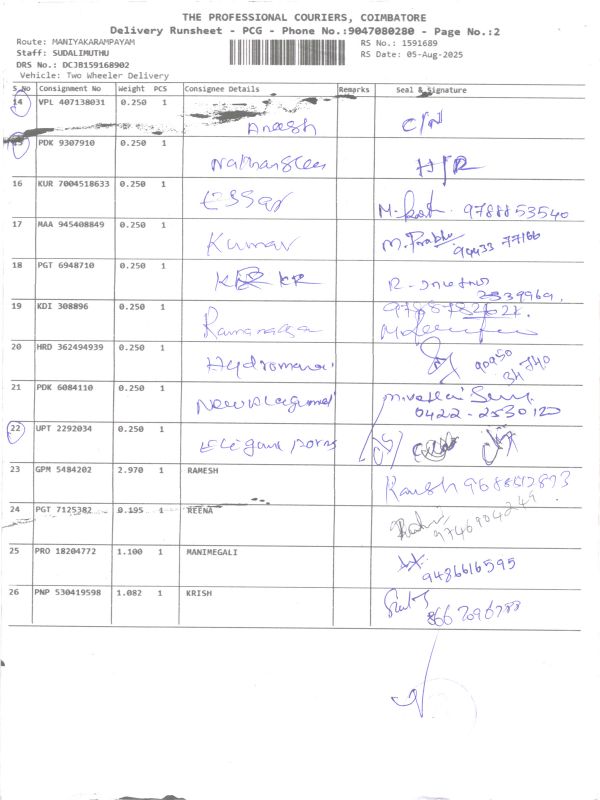 THE PROFESSIONAL COURIERS, COIMBATORE
Delivery Runsheet - PCG - Phone No.:9047080280 - Page No.:2
Route: MANIYAKARAMPAYAM
Staff: SUDALIMUTHU
DRS No.: DCJB159168902
Vehicle: Two Wheeler Delivery
RS No.: 1591689
RS Date: 05-Aug-2025
S.No Consignment No Weight PCS Consignee Details Remarks Seal & Signature
14 VPL 407138031 0.250 1 C/N
15 PDK 9307910 0.250 1 H/R
16 KUR 7004518633 0.250 1 Essar 9788853540
17 MAA 945408849 0.250 1 Kumar M. Prabhu 94433 77166
18 PGT 6948710 0.250 1 KR
2539969.
19 KDI 308896 0.250 1
20 HRD 362494939 0.250 1 90950 34740
21 PDK 6084110 0.250 1
0422-2530120
22 UPT 2292034 0.250 1
23 GPM 5484202 2.970 1 RAMESH
24 PGT 7125382 0.195 1 REENA 9746904249
25 PRO 18204772 1.100 1 MANIMEGALI 9486616595
26 PNP 530419598 1.082 1 KRISH